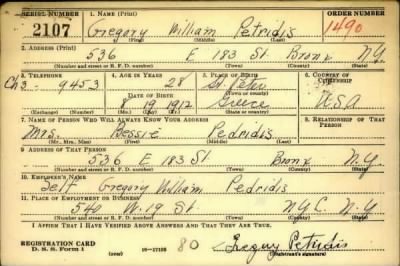 SERIAL NUMBER 1. NAME (Print) ORDER NUMBER
2107 Gregory William Petridis 1490
(First) (Middle) (Last)
2. ADDRESS (Print)
536 E 183 St. Bronx N.Y.
(Number and street or R. F. D. number) (Town) (County) (State)
3. TELEPHONE 4. AGE IN YEARS 5. PLACE OF BIRTH 6. COUNTRY OF CITIZENSHIP
Ch3 - 9453 28 St. Peter
DATE OF BIRTH (Town or county)
8 19 1912 Greece U.S.A
(Exchange) (Number) (Mo.) (Day) (Yr.) (State or country)
7. NAME OF PERSON WHO WILL ALWAYS KNOW YOUR ADDRESS 8. RELATIONSHIP OF THAT PERSON
Mrs. Bessie Pedridis
(Mr., Mrs., Miss) (First) (Middle) (Last)
9. ADDRESS OF THAT PERSON
536 E 183 St. Bronx N.Y.
(Number and street or R. F. D. number) (Town) (County) (State)
10. EMPLOYER'S NAME
Self Gregory William Pedridis
11. PLACE OF EMPLOYMENT OR BUSINESS
540 W. 19 St. N.Y.C. N.Y.
(Number and street or R. F. D. number) (Town) (County) (State)
I AFFIRM THAT I HAVE VERIFIED ABOVE ANSWERS AND THAT THEY ARE TRUE.
REGISTRATION CARD
D. S. S. Form 1 16—17105 80 Gregory Petridis
(Registrant's signature)